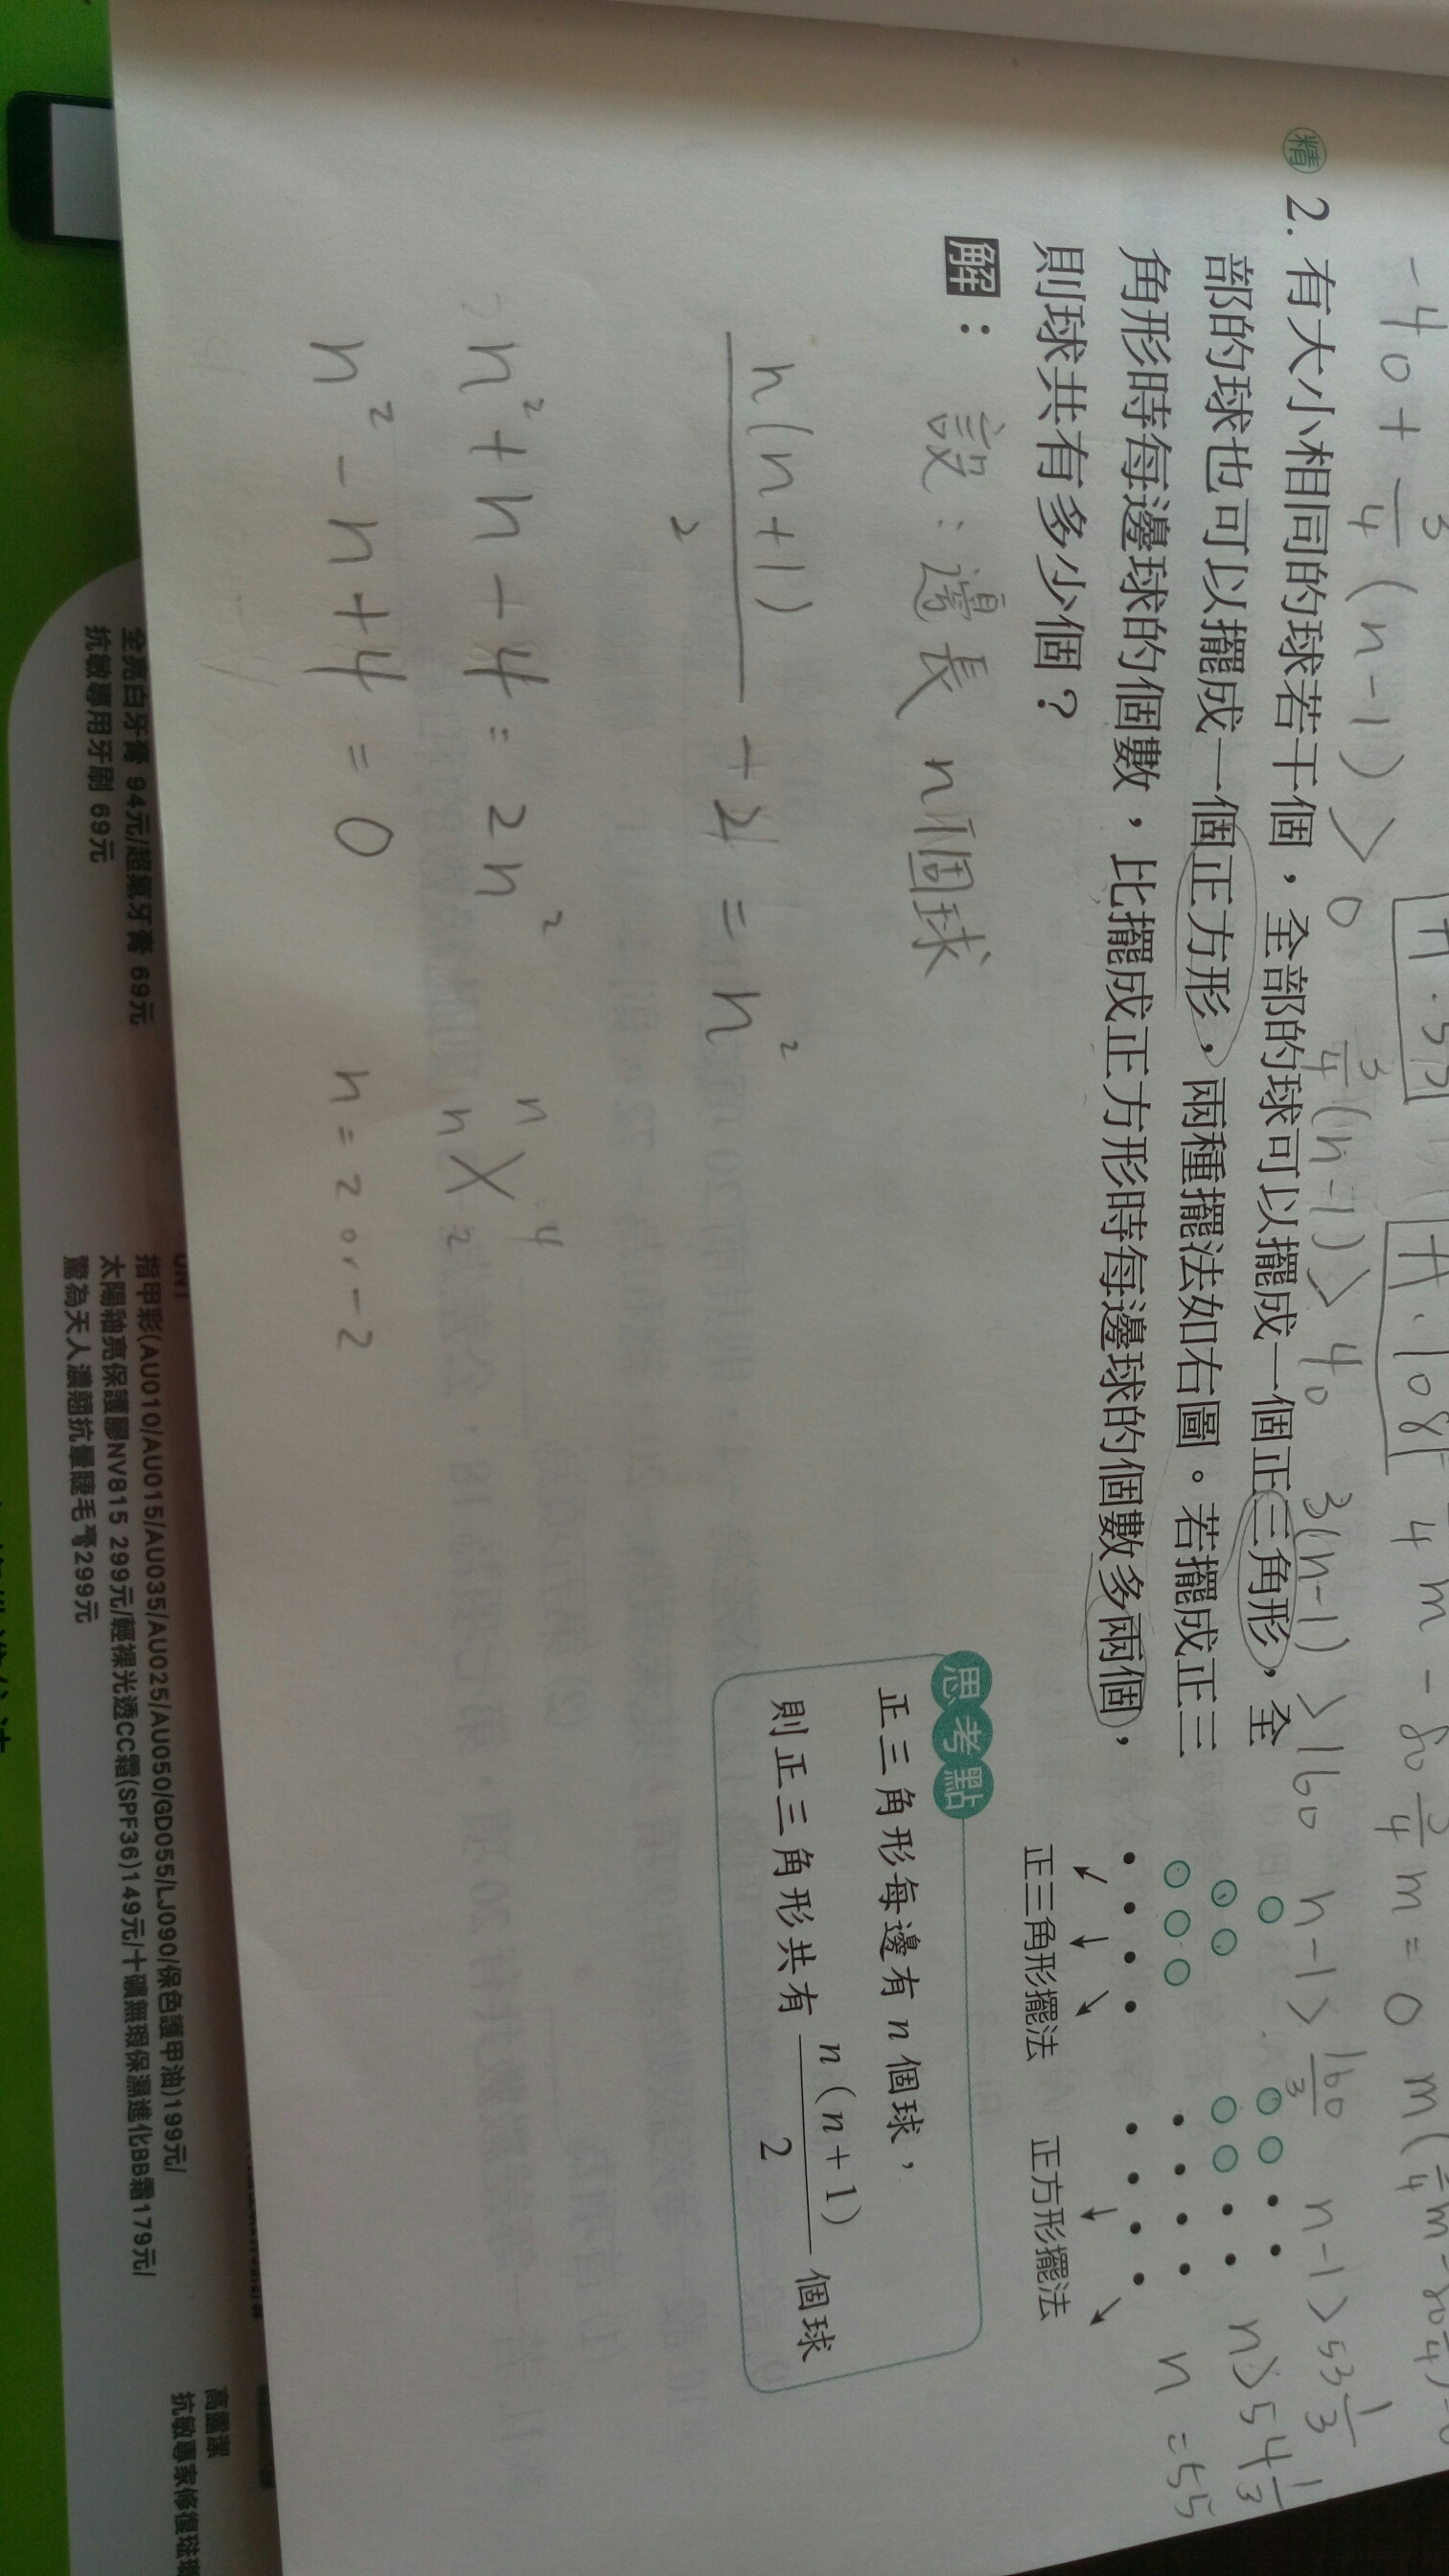 -40+3/4(n-1)>0 3/4(n-1)>40 3(n-1)>160 n-1>160/3 n-1>53 1/3
n>54 1/3
n=55
精 2. 有大小相同的球若干個，全部的球可以擺成一個正三角形，全
部的球也可以擺成一個正方形，兩種擺法如右圖。若擺成正三
角形時每邊球的個數，比擺成正方形時每邊球的個數多兩個，
則球共有多少個？
正三角形擺法 正方形擺法
解： 設：邊長 n個球
思考點
正三角形每邊有 n 個球，
則正三角形共有 n(n+1)/2 個球
n(n+1)/2 - 2 = n²
n²+n-4=2n²
n -4
n 2
n²-n+4=0 n=2 or -2
全亮白牙膏 94元/超氟牙膏 69元
抗敏專用牙刷 69元
指甲彩(AU010/AU015/AU035/AU025/AU050/GD055/LJ090/保色護甲油)199元/
太陽釉亮保護膠NV815 299元/輕裸光透CC霜(SPF36)149元/十礦無瑕保濕進化BB霜179元/
驚為天人濃翹抗暈睫毛膏299元
高露潔